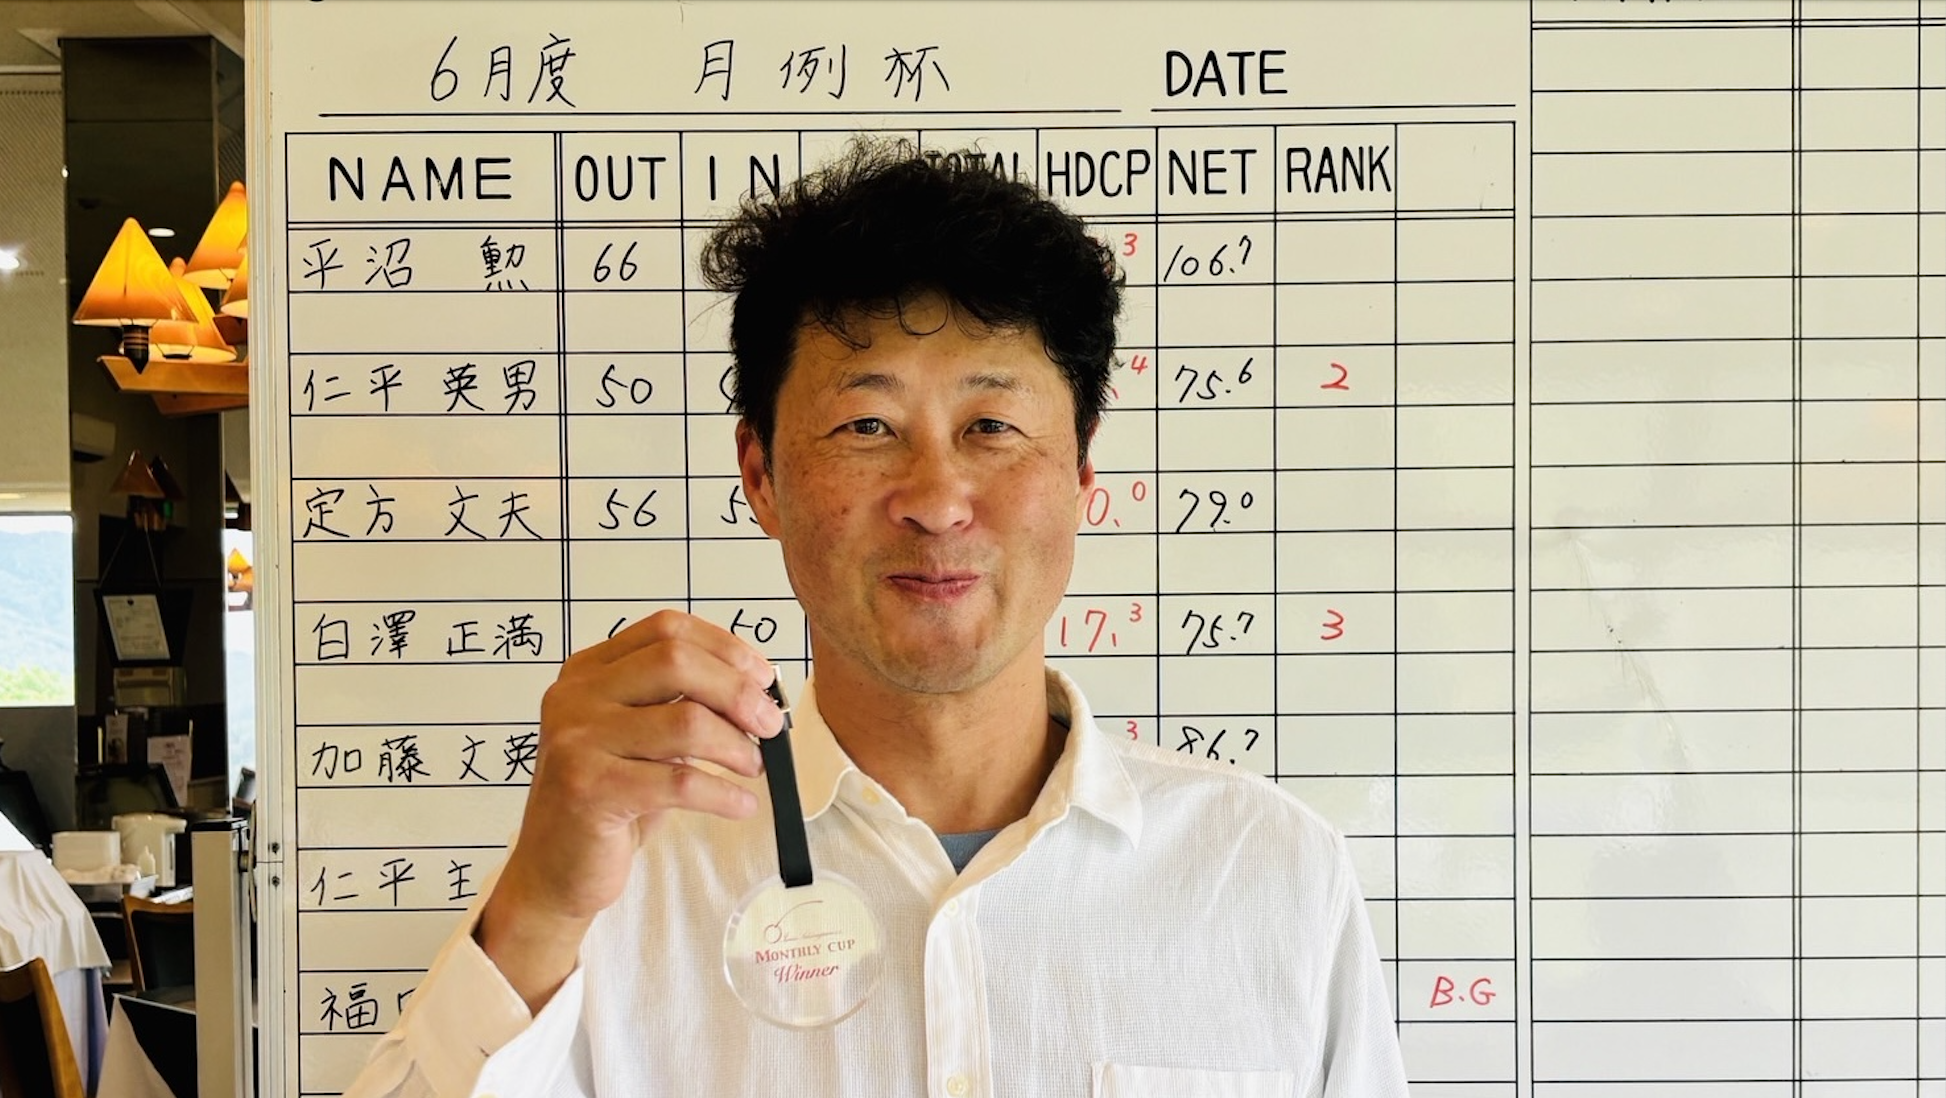 6月度 月例杯 DATE
NAME OUT IN TOTAL HDCP NET RANK
平沼 勲 66 3 106.7
仁平 英男 50 4 75.6 2
定方 文夫 56 0.0 79.0
白澤 正満 50 17.3 75.7 3
加藤 文英 3 86.7
仁平 主
福
B.G
MONTHLY CUP
Winner